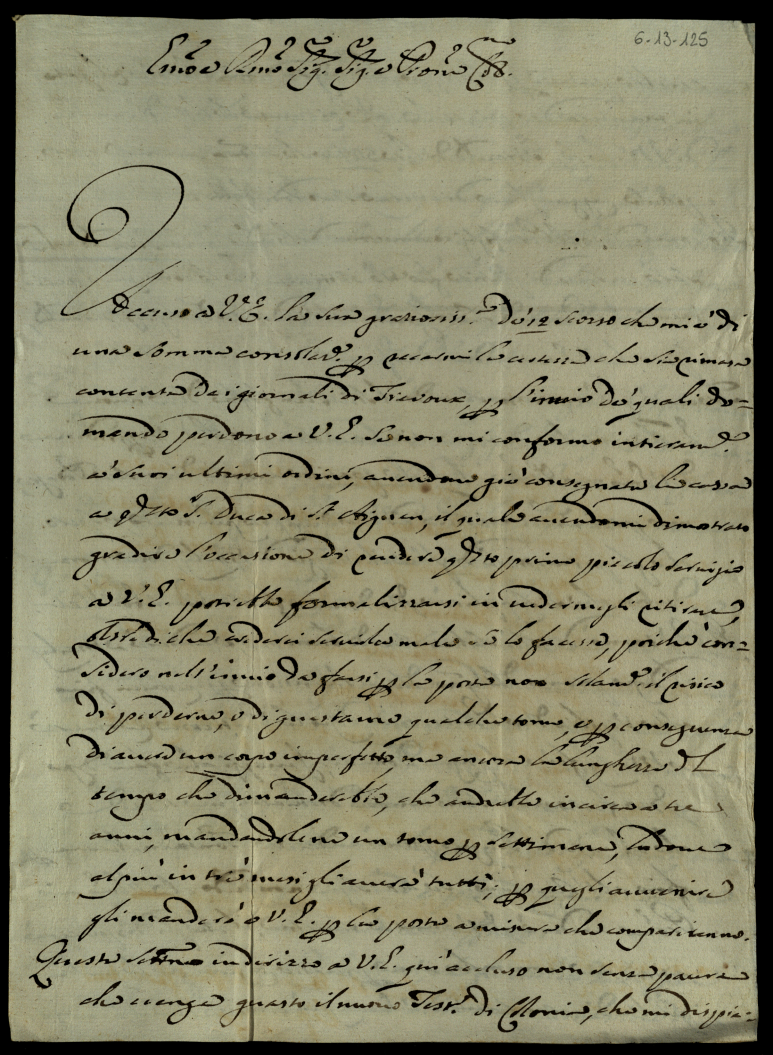 6-13-125
Emo e Rmo Sig. Sig. e Prone Col.
Accuso a V.E. la sua grazioss.ma de' 12 scorso che mi è di
una somma consolaz.e p recarmi la certezza che sia rimasa
contenta de i giornali di Trevoux, p l'invio de' quali do=
mando perdono a V.E. se non mi conformo intieram.e
a' suoi ultimi ordini, avendone già consegnata la cassa
a qsto S. Duca di St. Aignan, il quale avendomi dimostrato
gradire l'occasione di rendere qsto primo piccolo servigio
a V.E. potrebbe formalizzarsi in vedermegli ritirare,
oltre di che crederei servirla male se lo facessi, poiché con=
sidero nell'invio da farsi p la posta non solam.e il risico
di perderne, o di guastarne qualche tomo, e p conseguenza
di avere un corpo imperfetto, ma ancora la lunghezza del
tempo che dimanderebbe, che andrebbe incirca a tre
anni, mandandolene un tomo p settimana, laddove
al più in tre mesi gli averà tutti; p quegli avvenire
gli manderò a V.E. p la posta a misura che compariranno.
Questa settma indirizzo a V.E. qui accluso non senza paura
che venga guasto il nuovo Test.o di Colonia, che mi dispia=